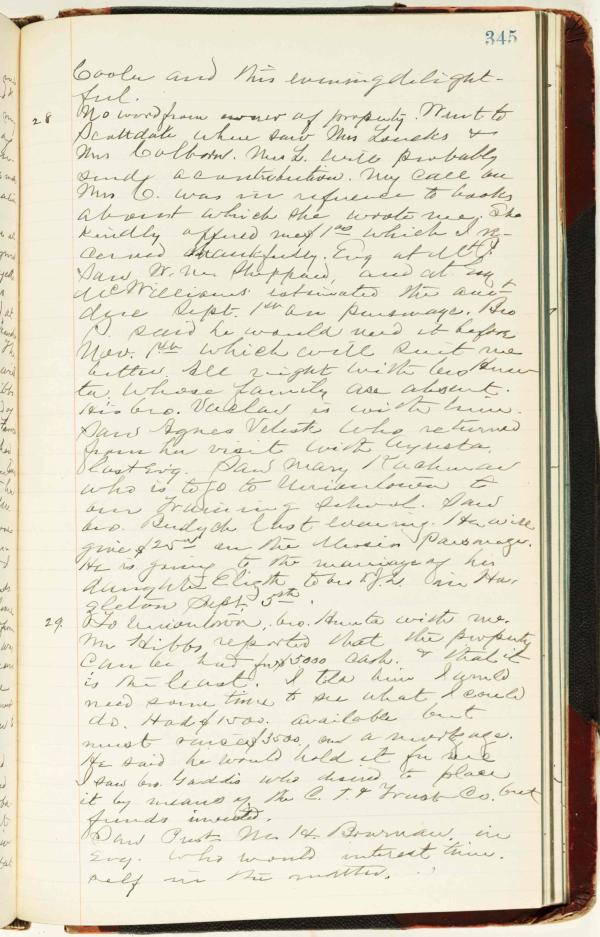 345
Cooler and this evening delight-
ful.
28 No word from owner of property. Went to
Scottdale where saw Mrs Loucks &
Mrs Colborn. Mrs L. will probably
send a contribution. My call on
Mrs C. was in reference to books
about which she wrote me. She
kindly offered me $1.00 which I re-
ceived thankfully. Evg at Mt P.
Saw W. M. Sheppard, and at my
McWilliams' estimated the amt
due Sept. 1st on parsonage. Bro
said he would need it before
Nov. 1st which will suit me
better. All right with bro Hunt-
ta, whose family are absent.
His bro. Vaclav is with him.
Saw Agnes who returned
from her visit with Agusta
last Evg. Saw Mary
who is to go to Uniontown to
our Training School. Saw
bro. last evening. He will
give $25.00 on the Mission Parsonage.
He is going to the marriage of his
daughter Elizth to bro in Ha-
zleton Sept. 5th.
29. To Uniontown, bro. Hunta with me.
Mr Hibbs reported that the property
can be had for $5000 cash. & that it
is the least. I told him I would
need some time to see what I could
do. Had $1500. available but
must raise $3500, on a mortgage.
He said he would hold it for me
I saw bro. Gaddis who desired to place
it by means of the C. T. & Trust Co. but
funds invested.
Saw Prest. M. H. Bowman, in
Evg. who would interest him-
self in the matter.